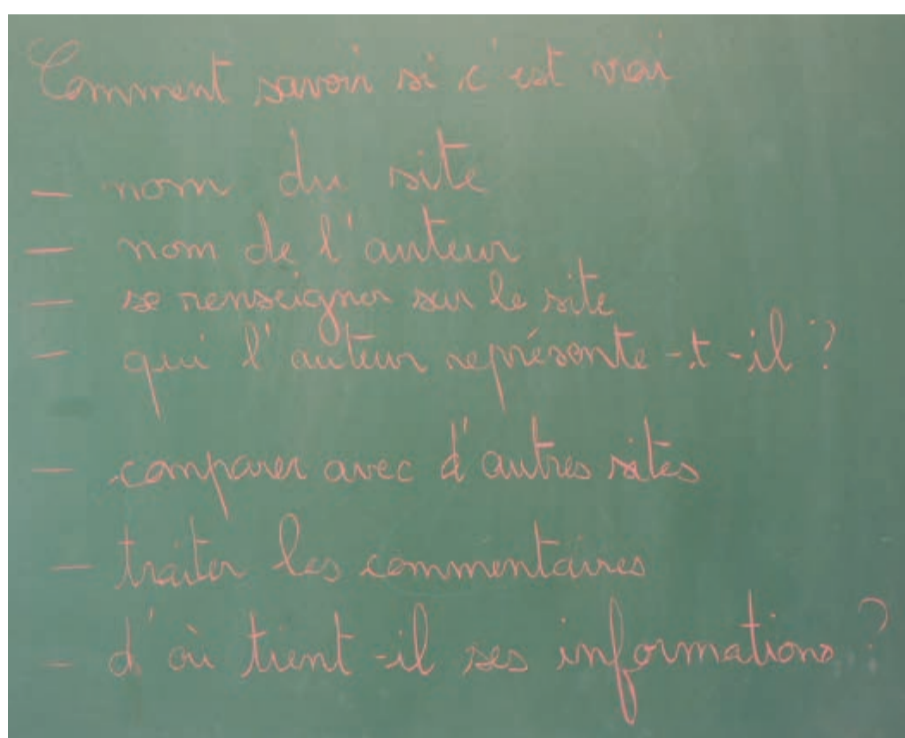 Comment savoir si c'est vrai
- nom du site
- nom de l'auteur
- se renseigner sur le site
- qui l'auteur représente-t-il ?
- comparer avec d'autres sites
- traiter les commentaires
- d'où tient-il ses informations ?